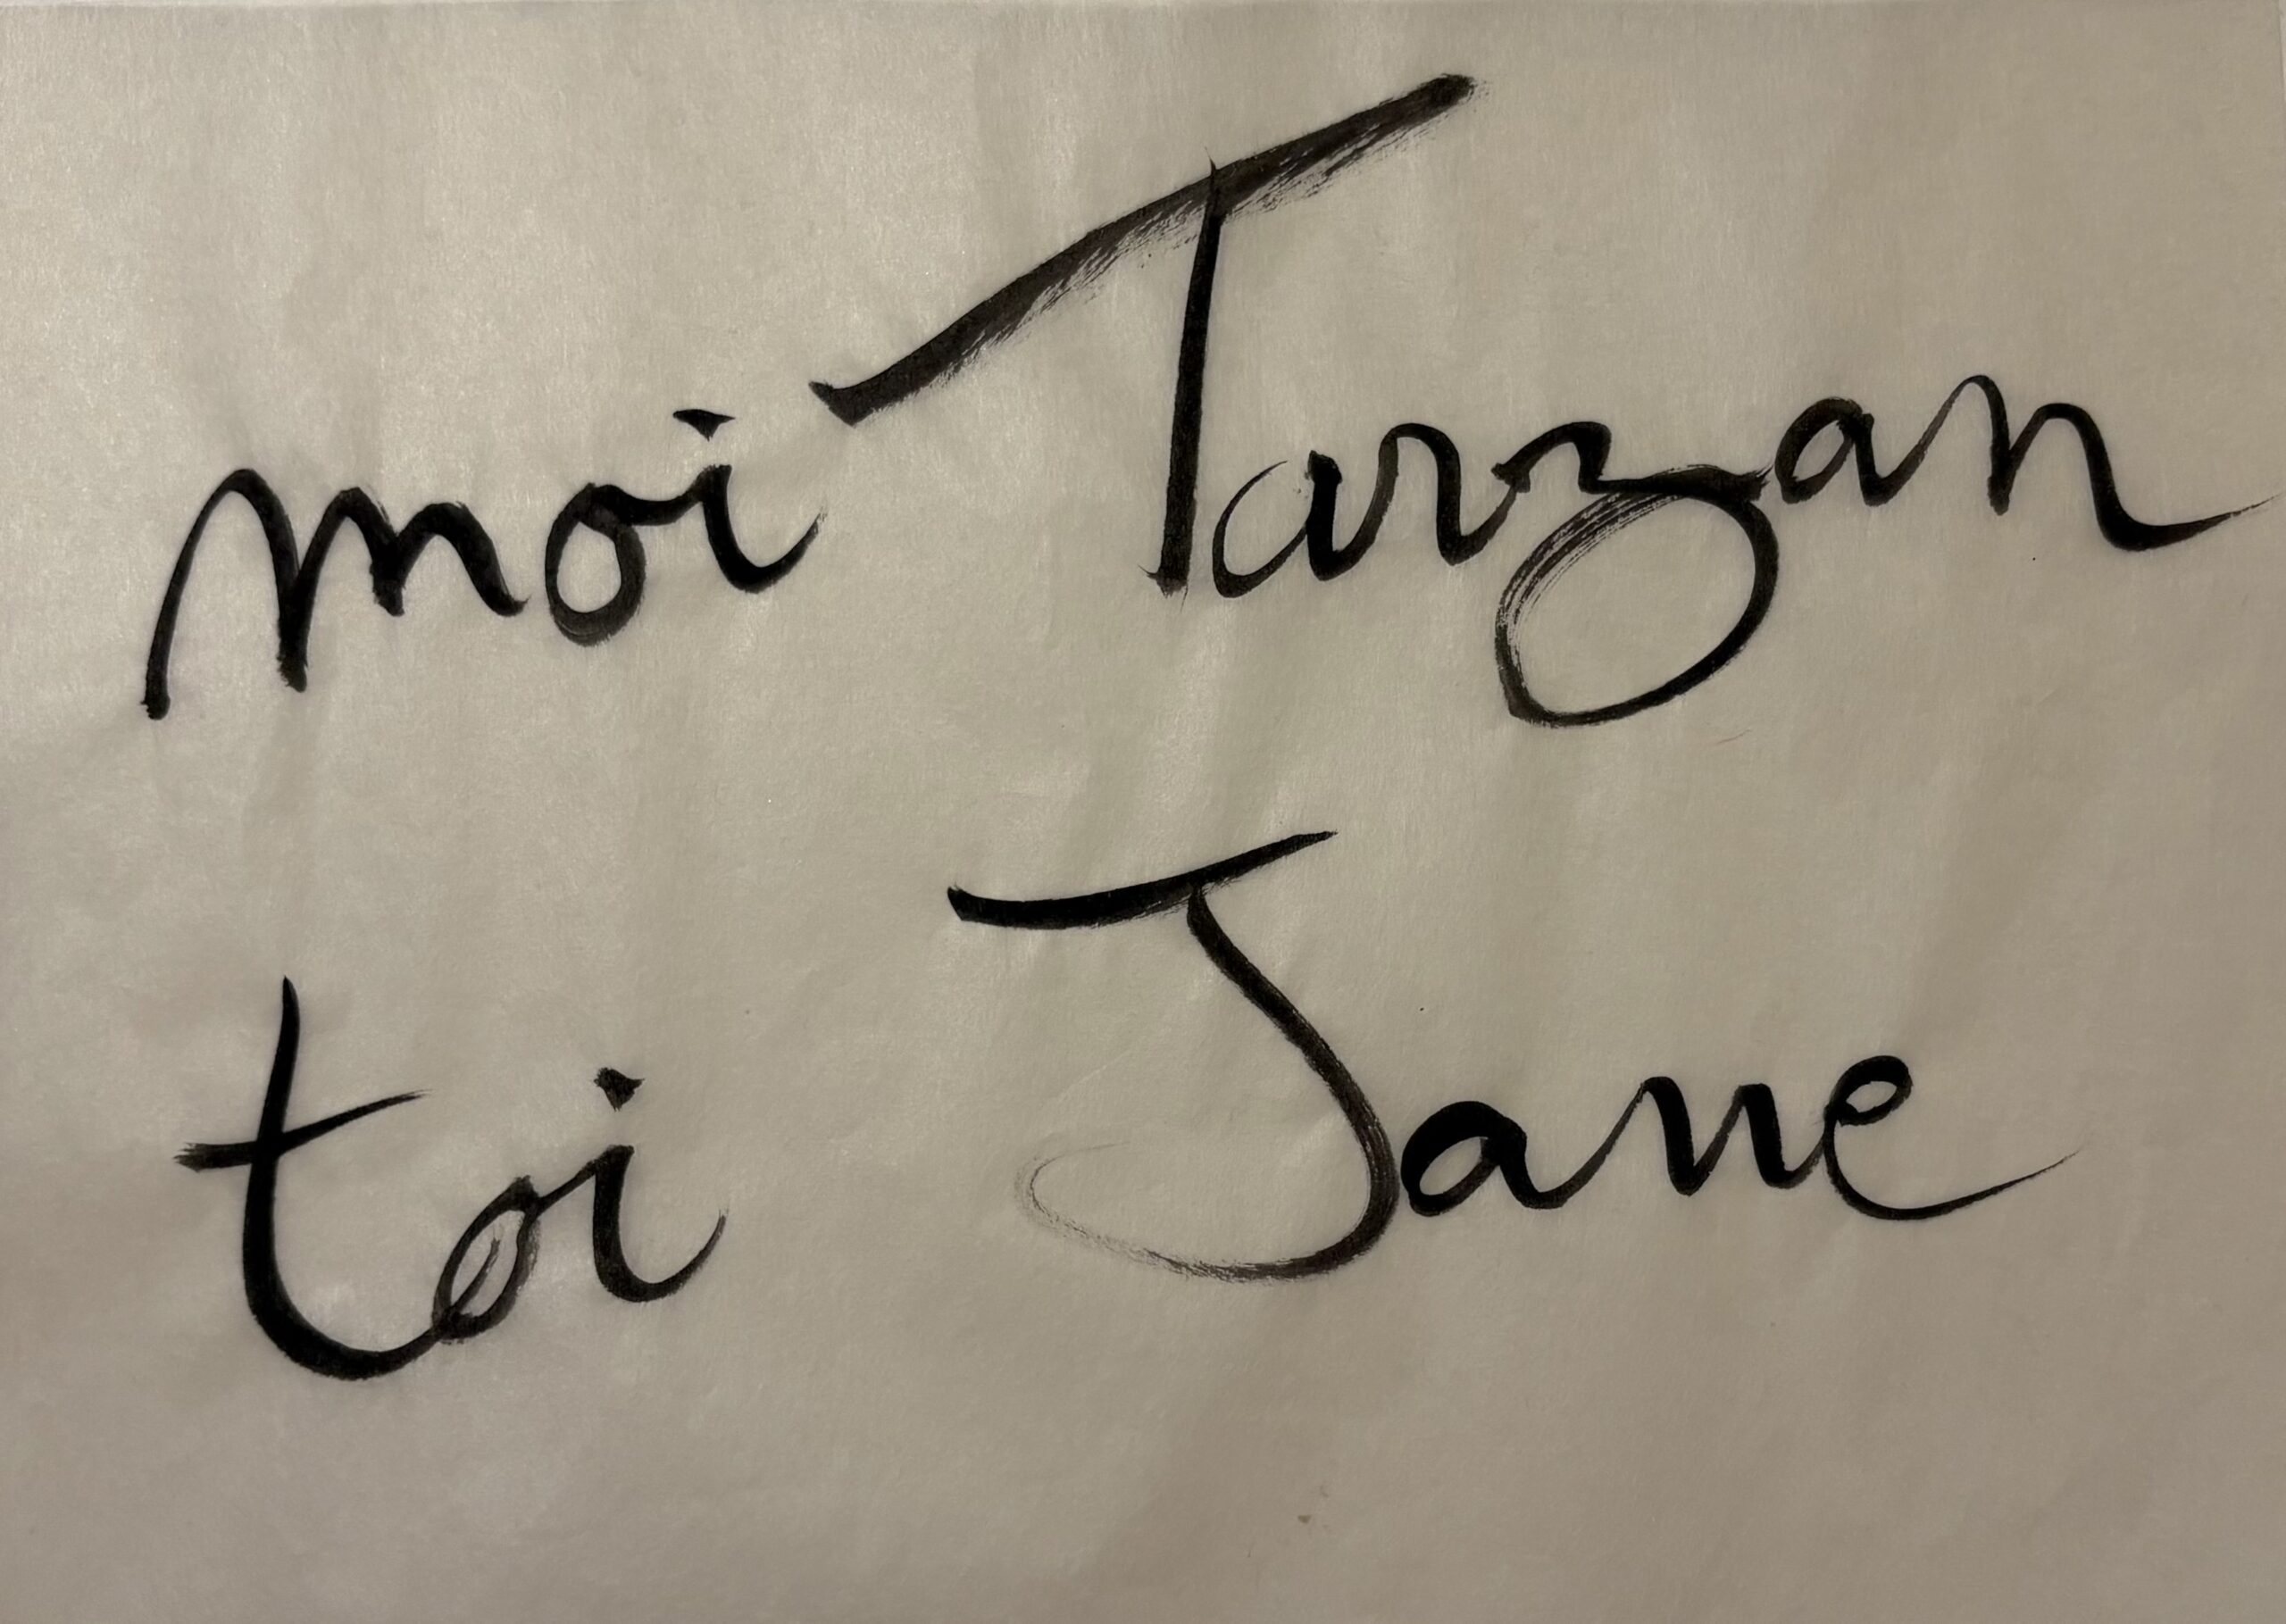 moi Tarzan
toi Jane